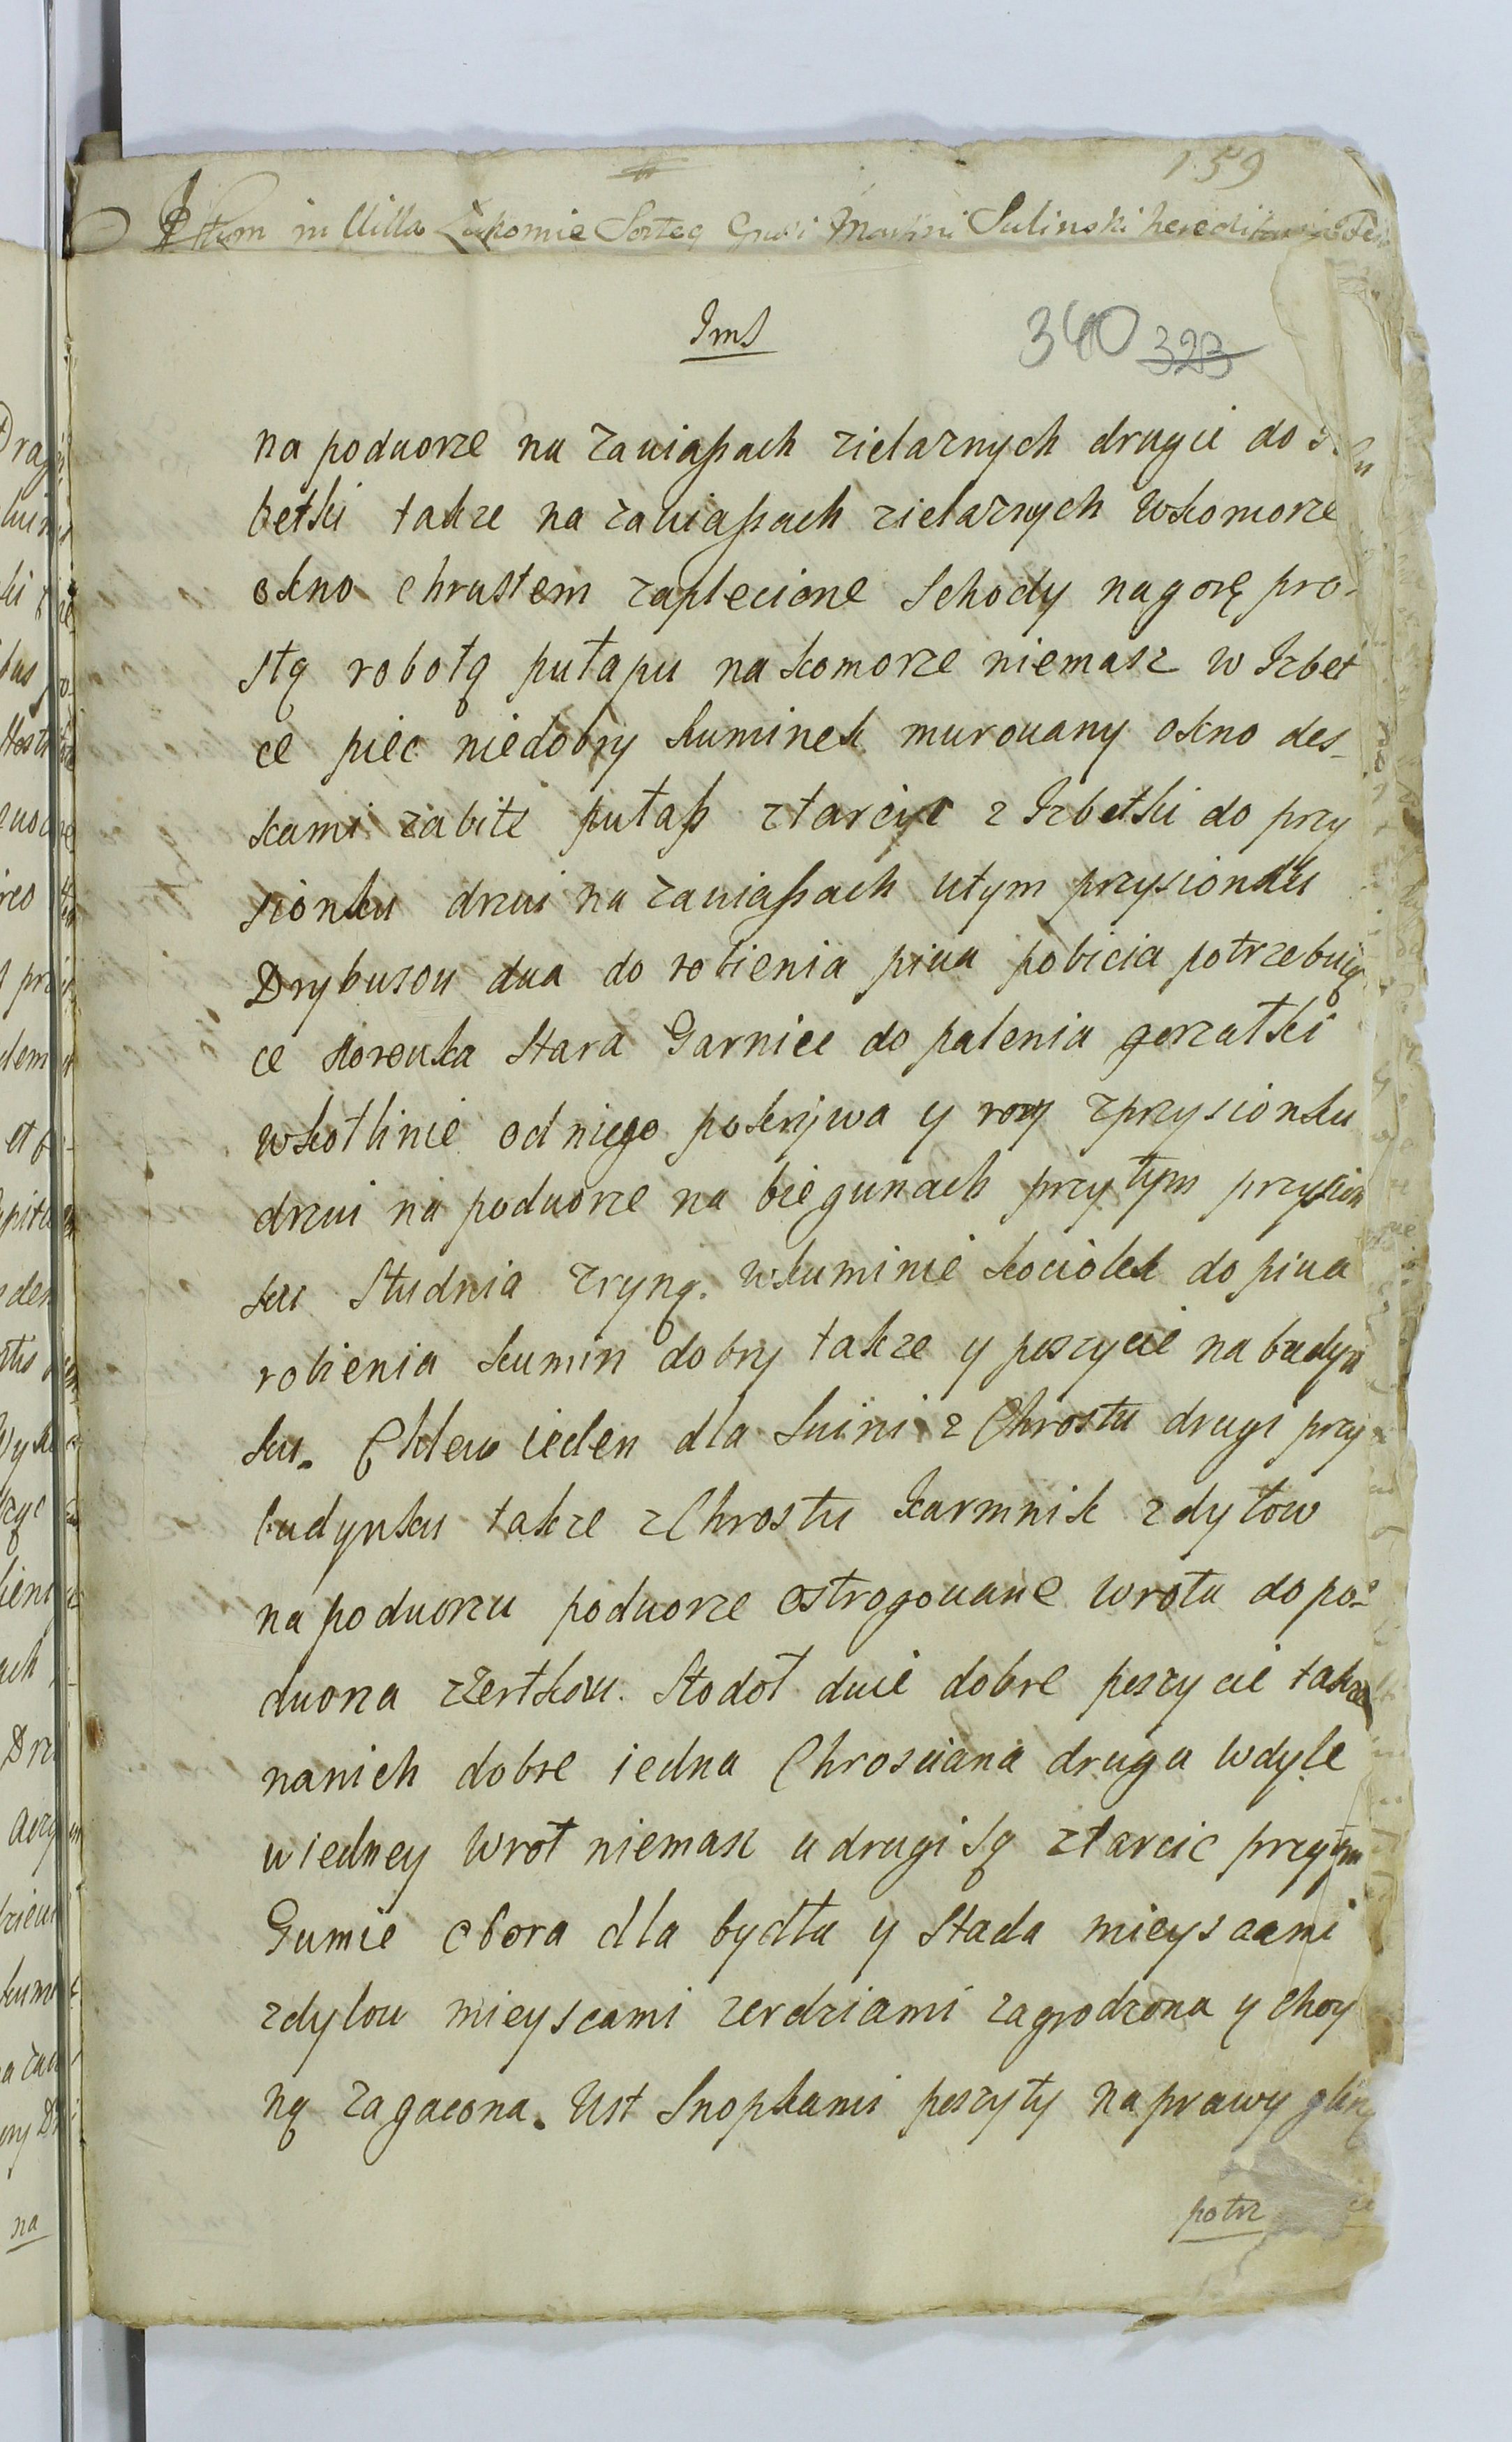 159
in Villa Łukomie Sorteq Gnsi Martini Sulinski
Ims
340 323
na poduorze na zauiaßach zielaznych drugie do
betki takze na zauiaßach zielaznych wkomorze
okno chrustem zaplecione Schody nagorę pro-
stą robotą pułapu na komorze niemasz w Izbet
ce piec niedobry kuminek murouany okno des-
kami zabite pułap ztarcyc z Izbetki do przy
sionku drzui na zauiaßach utym przysionku
Drybusou dua do robienia piua pobicia potrzebuią
ce Korouka Stara Garniec do palenia gorzałki
wkotlinie odniego pokrywa y rury zprzysionku
drzui na poduorze na biegunach przytym przysion
ku Studnia zryną. wkuminie kociołek do piua
robienia kumin dobry takze y poszycie na budyn
ku. Chlew ieden dla Suini z Chrostu drugi przy
budynku takze zChrostu karmnik zdylow
na poduorzu poduorze ostrogouane wrota do po-
duorza zzertkou. Stodoł duie dobre poszycie takze
nanich dobre iedna Chrosciana druga wdyle
uiedney wrot niemasz u drugi są ztarcic przytym
Gumie obora dla bydła y Stada mieyscami
zdylou mieyscami zerdziami zagrodzona y choy
ną zagacona. Ust Snopkami poszyty naprawy gliną
potrz